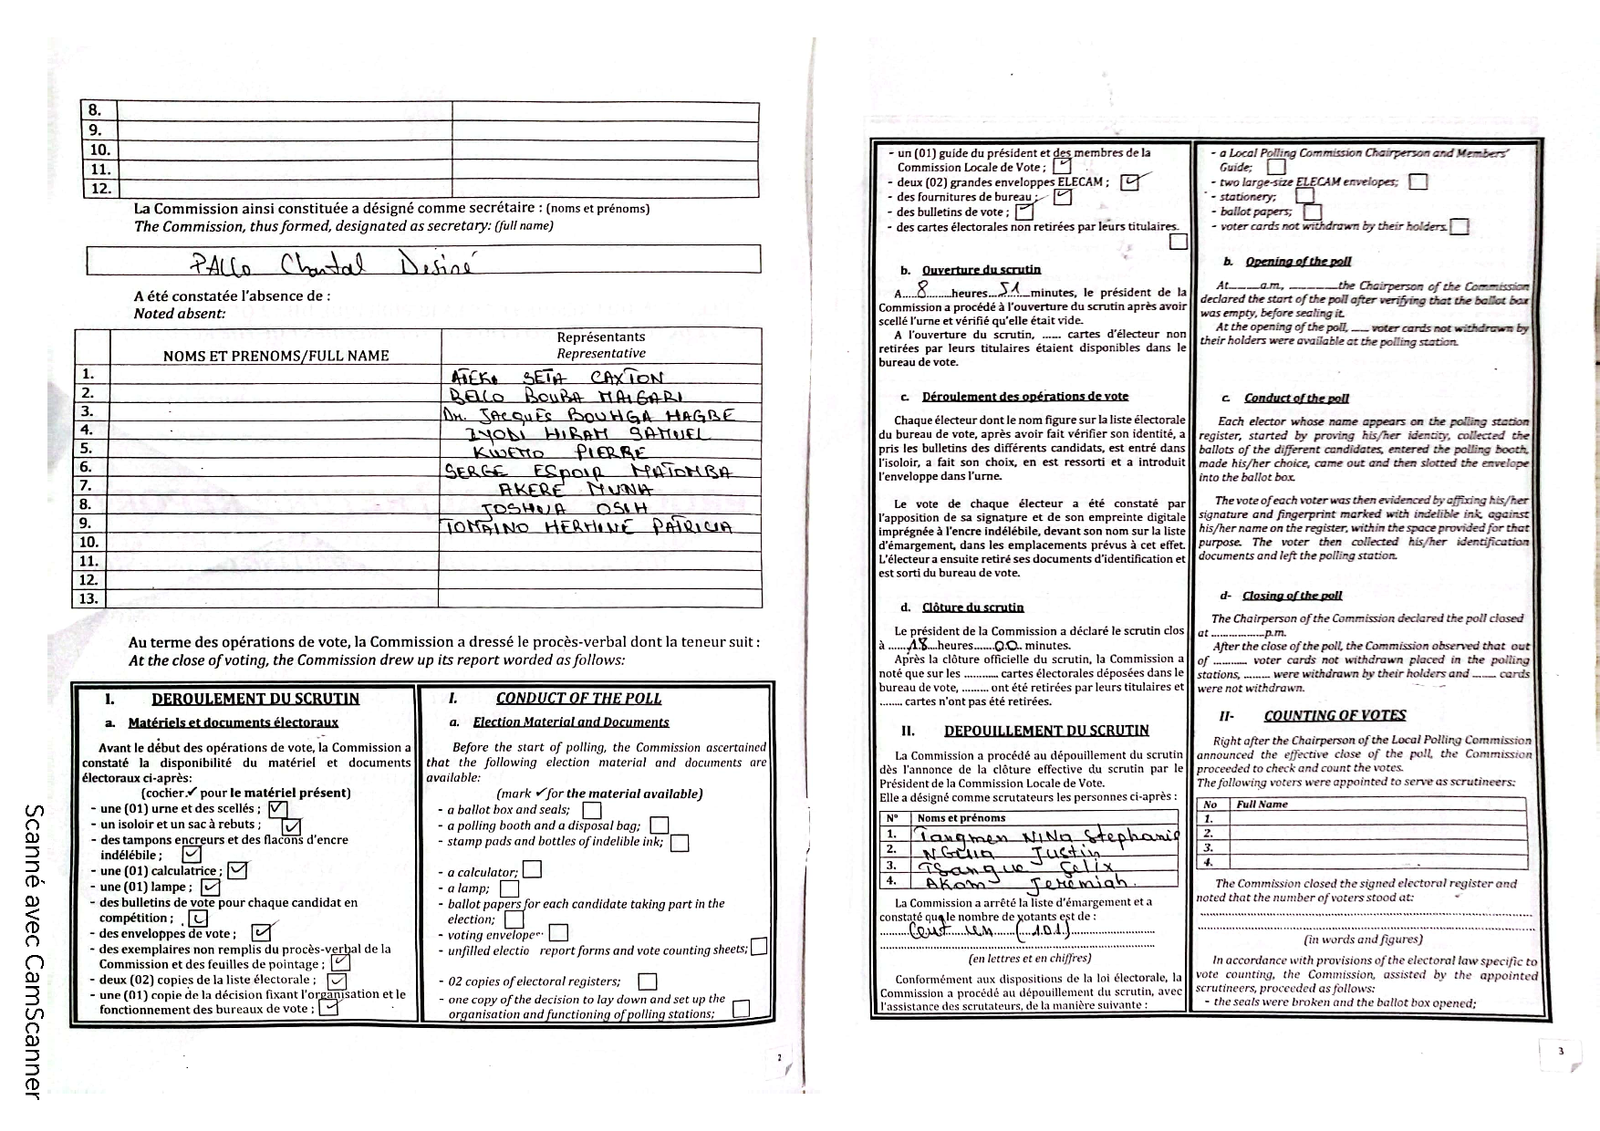 8.
9.
10.
11.
12.
La Commission ainsi constituée a désigné comme secrétaire : (noms et prénoms)
The Commission, thus formed, designated as secretary: (full name)
PALLO Chantal Desiré
A été constatée l'absence de :
Noted absent:
NOMS ET PRENOMS/FULL NAME
Représentants
Representative
1. ATEKI SETA CAXTON
2. BELLO BOUBA MAIGARI
3. Dr. JACQUES BOUHGA HAGBE
4. IYODI HIRAM SAMUEL
5. KWEMO PIERRE
6. SERGE ESPOIR MATOMBA
7. AKERE MUNA
8. JOSHUA OSIH
9. TOMAINO HERMINE PATRICIA
10.
11.
12.
13.
Au terme des opérations de vote, la Commission a dressé le procès-verbal dont la teneur suit :
At the close of voting, the Commission drew up its report worded as follows:
I. DEROULEMENT DU SCRUTIN
a. Matériels et documents électoraux
Avant le début des opérations de vote, la Commission a
constaté la disponibilité du matériel et documents
électoraux ci-après:
(cocher ✓ pour le matériel présent)
- une (01) urne et des scellés ; ☑
- un isoloir et un sac à rebuts ; ☑
- des tampons encreurs et des flacons d'encre
indélébile ; ☑
- une (01) calculatrice ; ☑
- une (01) lampe ; ☑
- des bulletins de vote pour chaque candidat en
compétition ; ☑
- des enveloppes de vote ; ☑
- des exemplaires non remplis du procès-verbal de la
Commission et des feuilles de pointage ; ☑
- deux (02) copies de la liste électorale ; ☑
- une (01) copie de la décision fixant l'organisation et le
fonctionnement des bureaux de vote ; ☑
I. CONDUCT OF THE POLL
a. Election Material and Documents
Before the start of polling, the Commission ascertained
that the following election material and documents are
available:
(mark ✓ for the material available)
- a ballot box and seals; ☐
- a polling booth and a disposal bag; ☐
- stamp pads and bottles of indelible ink; ☐
- a calculator; ☐
- a lamp; ☐
- ballot papers for each candidate taking part in the
election; ☐
- voting envelope ☐
- unfilled electio report forms and vote counting sheets; ☐
- 02 copies of electoral registers; ☐
- one copy of the decision to lay down and set up the
organisation and functioning of polling stations; ☐
2
Scanné avec CamScanner
- un (01) guide du président et des membres de la
Commission Locale de Vote ; ☑
- deux (02) grandes enveloppes ELECAM ; ☑
- des fournitures de bureau ; ☑
- des bulletins de vote ; ☑
- des cartes électorales non retirées par leurs titulaires.
☐
b. Ouverture du scrutin
A....8........heures...51...minutes, le président de la
Commission a procédé à l'ouverture du scrutin après avoir
scellé l'urne et vérifié qu'elle était vide.
A l'ouverture du scrutin, ...... cartes d'électeur non
retirées par leurs titulaires étaient disponibles dans le
bureau de vote.
c. Déroulement des opérations de vote
Chaque électeur dont le nom figure sur la liste électorale
du bureau de vote, après avoir fait vérifier son identité, a
pris les bulletins des différents candidats, est entré dans
l'isoloir, a fait son choix, en est ressorti et a introduit
l'enveloppe dans l'urne.
Le vote de chaque électeur a été constaté par
l'apposition de sa signature et de son empreinte digitale
imprégnée à l'encre indélébile, devant son nom sur la liste
d'émargement, dans les emplacements prévus à cet effet.
L'électeur a ensuite retiré ses documents d'identification et
est sorti du bureau de vote.
d. Clôture du scrutin
Le président de la Commission a déclaré le scrutin clos
à ......18....heures......00... minutes.
Après la clôture officielle du scrutin, la Commission a
noté que sur les ............ cartes électorales déposées dans le
bureau de vote, ......... ont été retirées par leurs titulaires et
........ cartes n'ont pas été retirées.
II. DEPOUILLEMENT DU SCRUTIN
La Commission a procédé au dépouillement du scrutin
dès l'annonce de la clôture effective du scrutin par le
Président de la Commission Locale de Vote.
Elle a désigné comme scrutateurs les personnes ci-après :
N° Noms et prénoms
1. Tangmen NINA Stephanie
2. NGUIA Justin
3. Tsangue Félix
4. Akom Jeremiah.
La Commission a arrêté la liste d'émargement et a
constaté que le nombre de votants est de :
Cent un (101)
(en lettres et en chiffres)
Conformément aux dispositions de la loi électorale, la
Commission a procédé au dépouillement du scrutin, avec
l'assistance des scrutateurs, de la manière suivante :
- a Local Polling Commission Chairperson and Members'
Guide; ☐
- two large-size ELECAM envelopes; ☐
- stationery; ☐
- ballot papers; ☐
- voter cards not withdrawn by their holders. ☐
b. Opening of the poll
At............a.m., ..............the Chairperson of the Commission
declared the start of the poll after verifying that the ballot box
was empty, before sealing it.
At the opening of the poll, ...... voter cards not withdrawn by
their holders were available at the polling station.
c. Conduct of the poll
Each elector whose name appears on the polling station
register, started by proving his/her identity, collected the
ballots of the different candidates, entered the polling booth,
made his/her choice, came out and then slotted the envelope
into the ballot box.
The vote of each voter was then evidenced by affixing his/her
signature and fingerprint marked with indelible ink, against
his/her name on the register, within the space provided for that
purpose. The voter then collected his/her identification
documents and left the polling station.
d- Closing of the poll
The Chairperson of the Commission declared the poll closed
at .................p.m.
After the close of the poll, the Commission observed that out
of ........... voter cards not withdrawn placed in the polling
stations, ......... were withdrawn by their holders and ........ cards
were not withdrawn.
II- COUNTING OF VOTES
Right after the Chairperson of the Local Polling Commission
announced the effective close of the poll, the Commission
proceeded to check and count the votes.
The following voters were appointed to serve as scrutineers:
No Full Name
1.
2.
3.
4.
The Commission closed the signed electoral register and
noted that the number of voters stood at:
(in words and figures)
In accordance with provisions of the electoral law specific to
vote counting, the Commission, assisted by the appointed
scrutineers, proceeded as follows:
- the seals were broken and the ballot box opened;
3